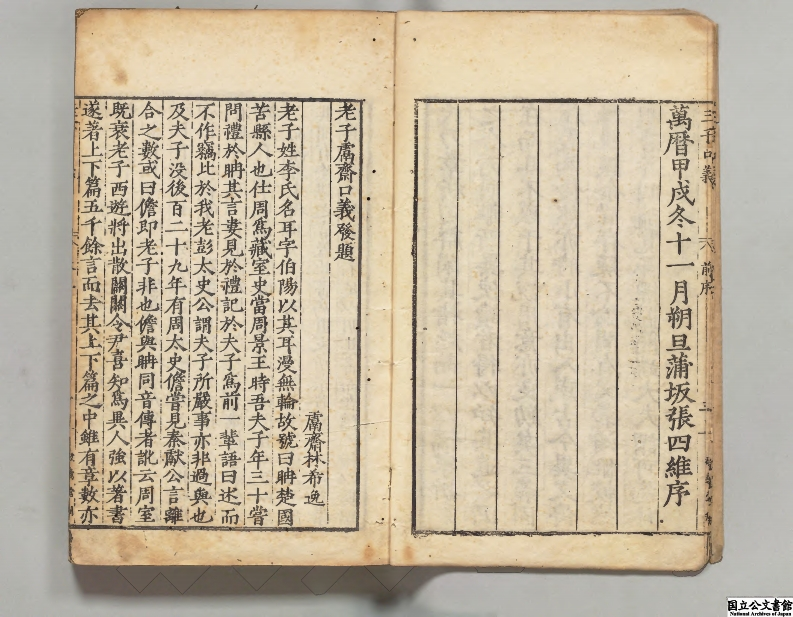 三子口義
前序
三
萬曆甲戌冬十一月朔旦蒲坂張四維序
老子鬳齋口義發題
鬳齋林希逸
老子姓李氏名耳字伯陽以其耳漫無輪故號曰聃楚國
苦縣人也仕周爲藏室史當周景王時吾夫子年三十嘗
問禮於聃其言屢見於禮記於夫子爲前一輩語曰述而
不作竊比於我老彭太史公謂夫子所嚴事亦非過與也
及夫子沒後百二十九年有周太史儋嘗見秦獻公言離
合之數或曰儋即老子非也儋與聃同音傳者訛云周室
既衰老子西遊將出散關關令尹喜知爲異人強以著書
遂著上下篇五千餘言而去其上下篇之中雖有章數亦
国立公文書館
National Archives of Japan